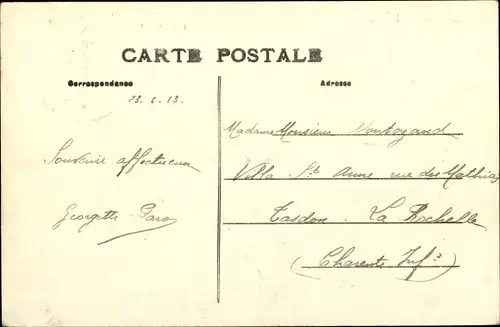 CARTE POSTALE
Correspondance
Adresse
23.6.13
Souvenir affectueux
Georgette
Madame Monsieur
Villa Ste Anne rue des
Tasdon. La Rochelle
(Charente Infre)